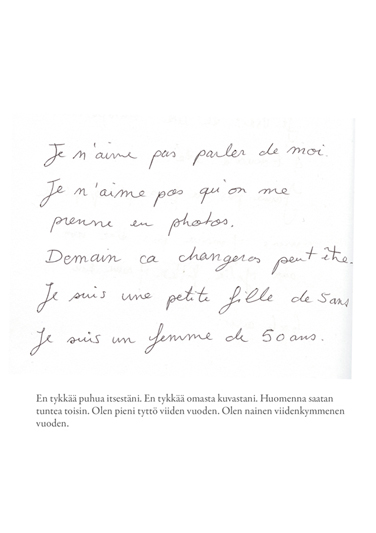 Je n'aime pas parler de moi.
Je n'aime pas qu'on me
prenne en photos.
Demain ca changeras peut être.
Je suis une petite fille de 5 ans
Je suis un femme de 50 ans.
En tykkää puhua itsestäni. En tykkää omasta kuvastani. Huomenna saatan
tuntea toisin. Olen pieni tyttö viiden vuoden. Olen nainen viidenkymmenen
vuoden.